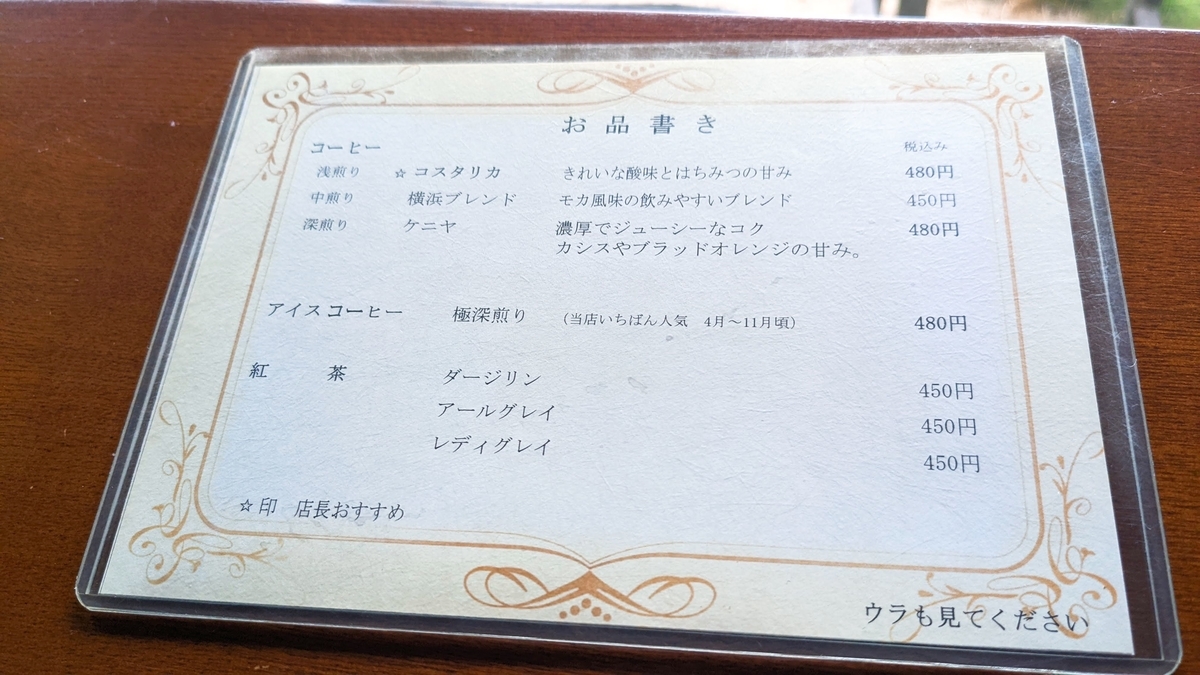 お品書き
コーヒー 税込み
浅煎り ☆コスタリカ きれいな酸味とはちみつの甘み 480円
中煎り 横浜ブレンド モカ風味の飲みやすいブレンド 450円
深煎り ケニヤ 濃厚でジューシーなコク 480円
カシスやブラッドオレンジの甘み。
アイスコーヒー 極深煎り (当店いちばん人気 4月～11月頃) 480円
紅 茶 ダージリン 450円
アールグレイ 450円
レディグレイ 450円
☆印 店長おすすめ
ウラも見てください